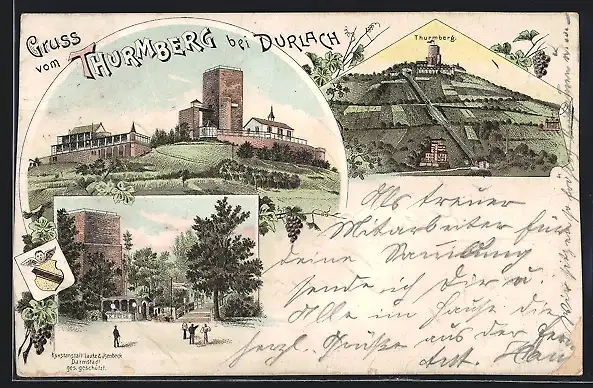 Gruss
vom THURMBERG bei DURLACH
Thurmberg.
Als treuer
Mitarbeiter für
deine Sammlung
sende ich dir u.
Alle im Hause die
herzl. Grüße aus der
Kunstanstalt Lautz & Isenbeck
Darmstadt
ges. geschützt.